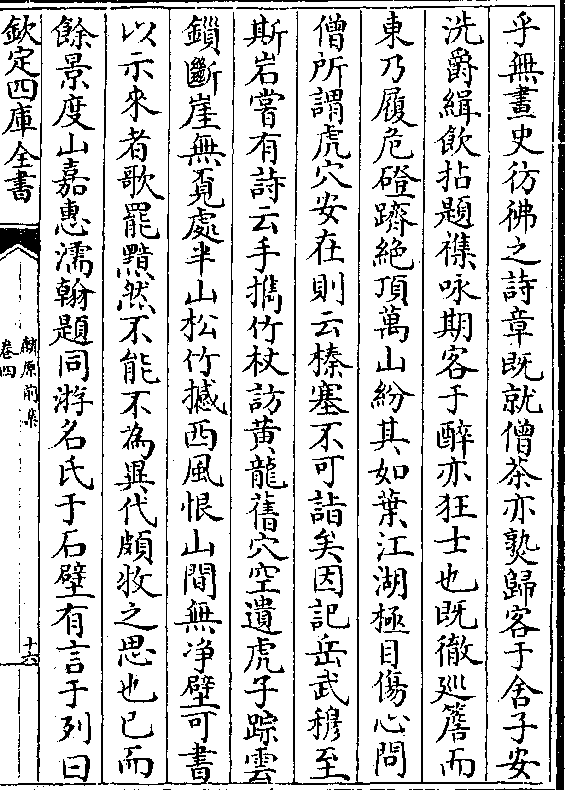 乎無畫史彷彿之詩章既就僧茶亦熟歸客于舍子安
洗爵緝飲拈題襍咏期客于醉亦狂士也既徹廵簷而
東乃履危磴躋絶頂萬山紛其如葉江湖極目傷心問
僧所謂虎穴安在則云榛塞不可詣矣因記岳武穆至
斯岩嘗有詩云手攜竹杖訪黄龍舊穴空遺虎子踪雲
鎖斷崖無覓處半山松竹撼西風恨山間無净壁可書
以示來者歌罷黯然不能不為異代頗牧之思也已而
餘景度山嘉惠濡翰題同游名氏于石壁有言于列曰
欽定四庫全書
麟原前集
卷四
十六